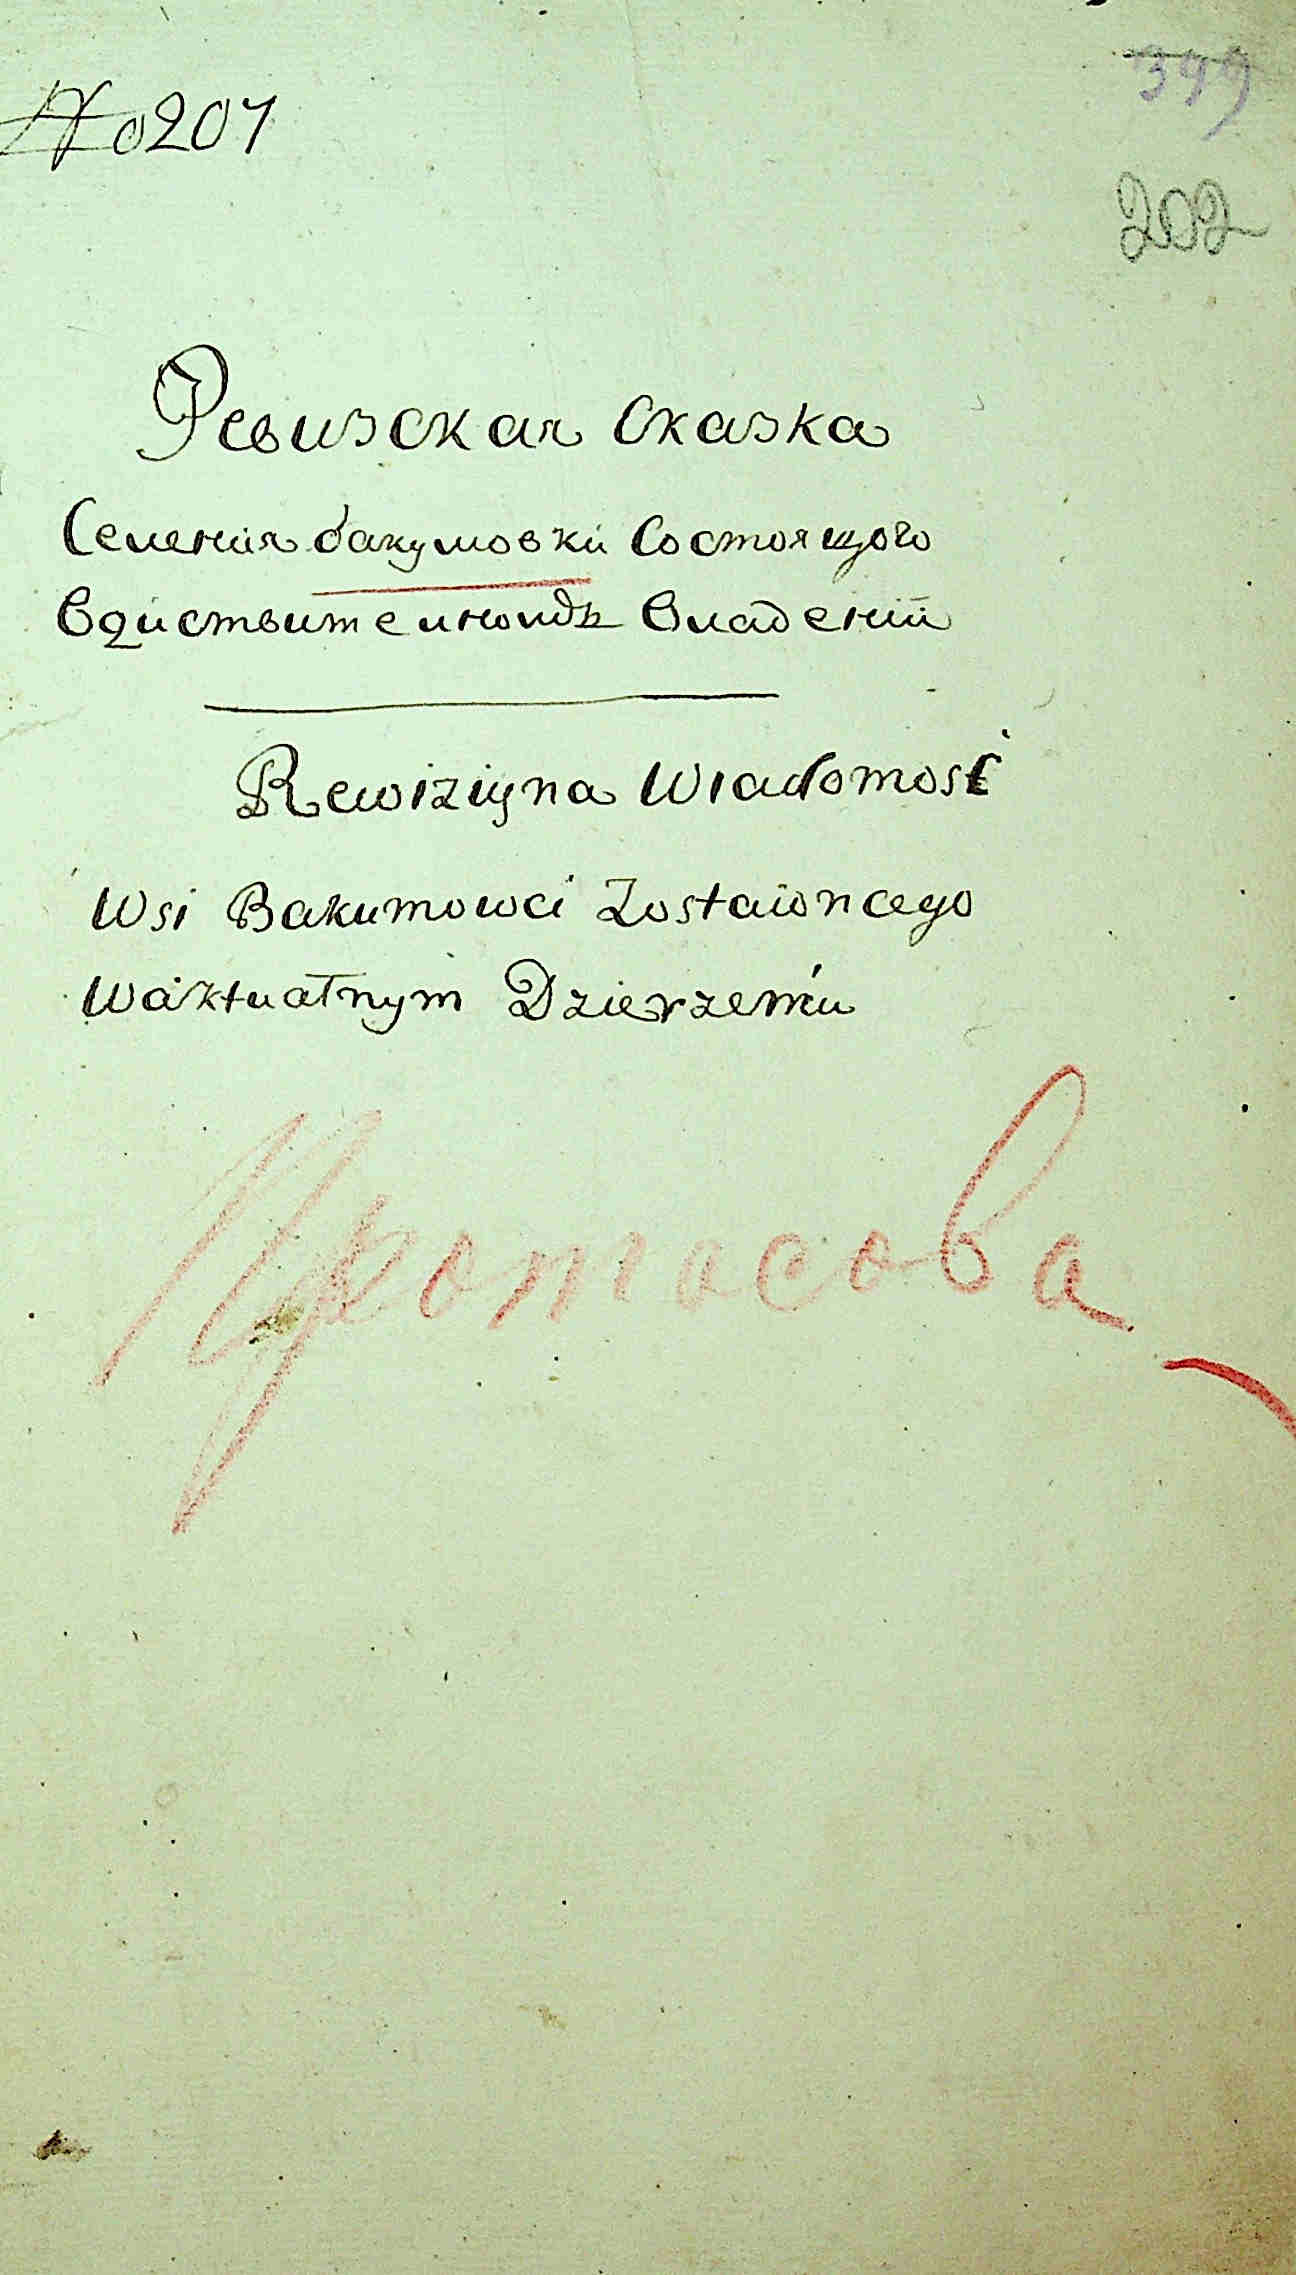 No 207
399
202
Ревизская Сказка
Селения бакумовки Состоящого
Вдиствителномъ Владении
Rewiziyna Wiadomosć
Wsi Bakumowci Zostaioncego
Waktuałnym Dzierzeniu
Протасова